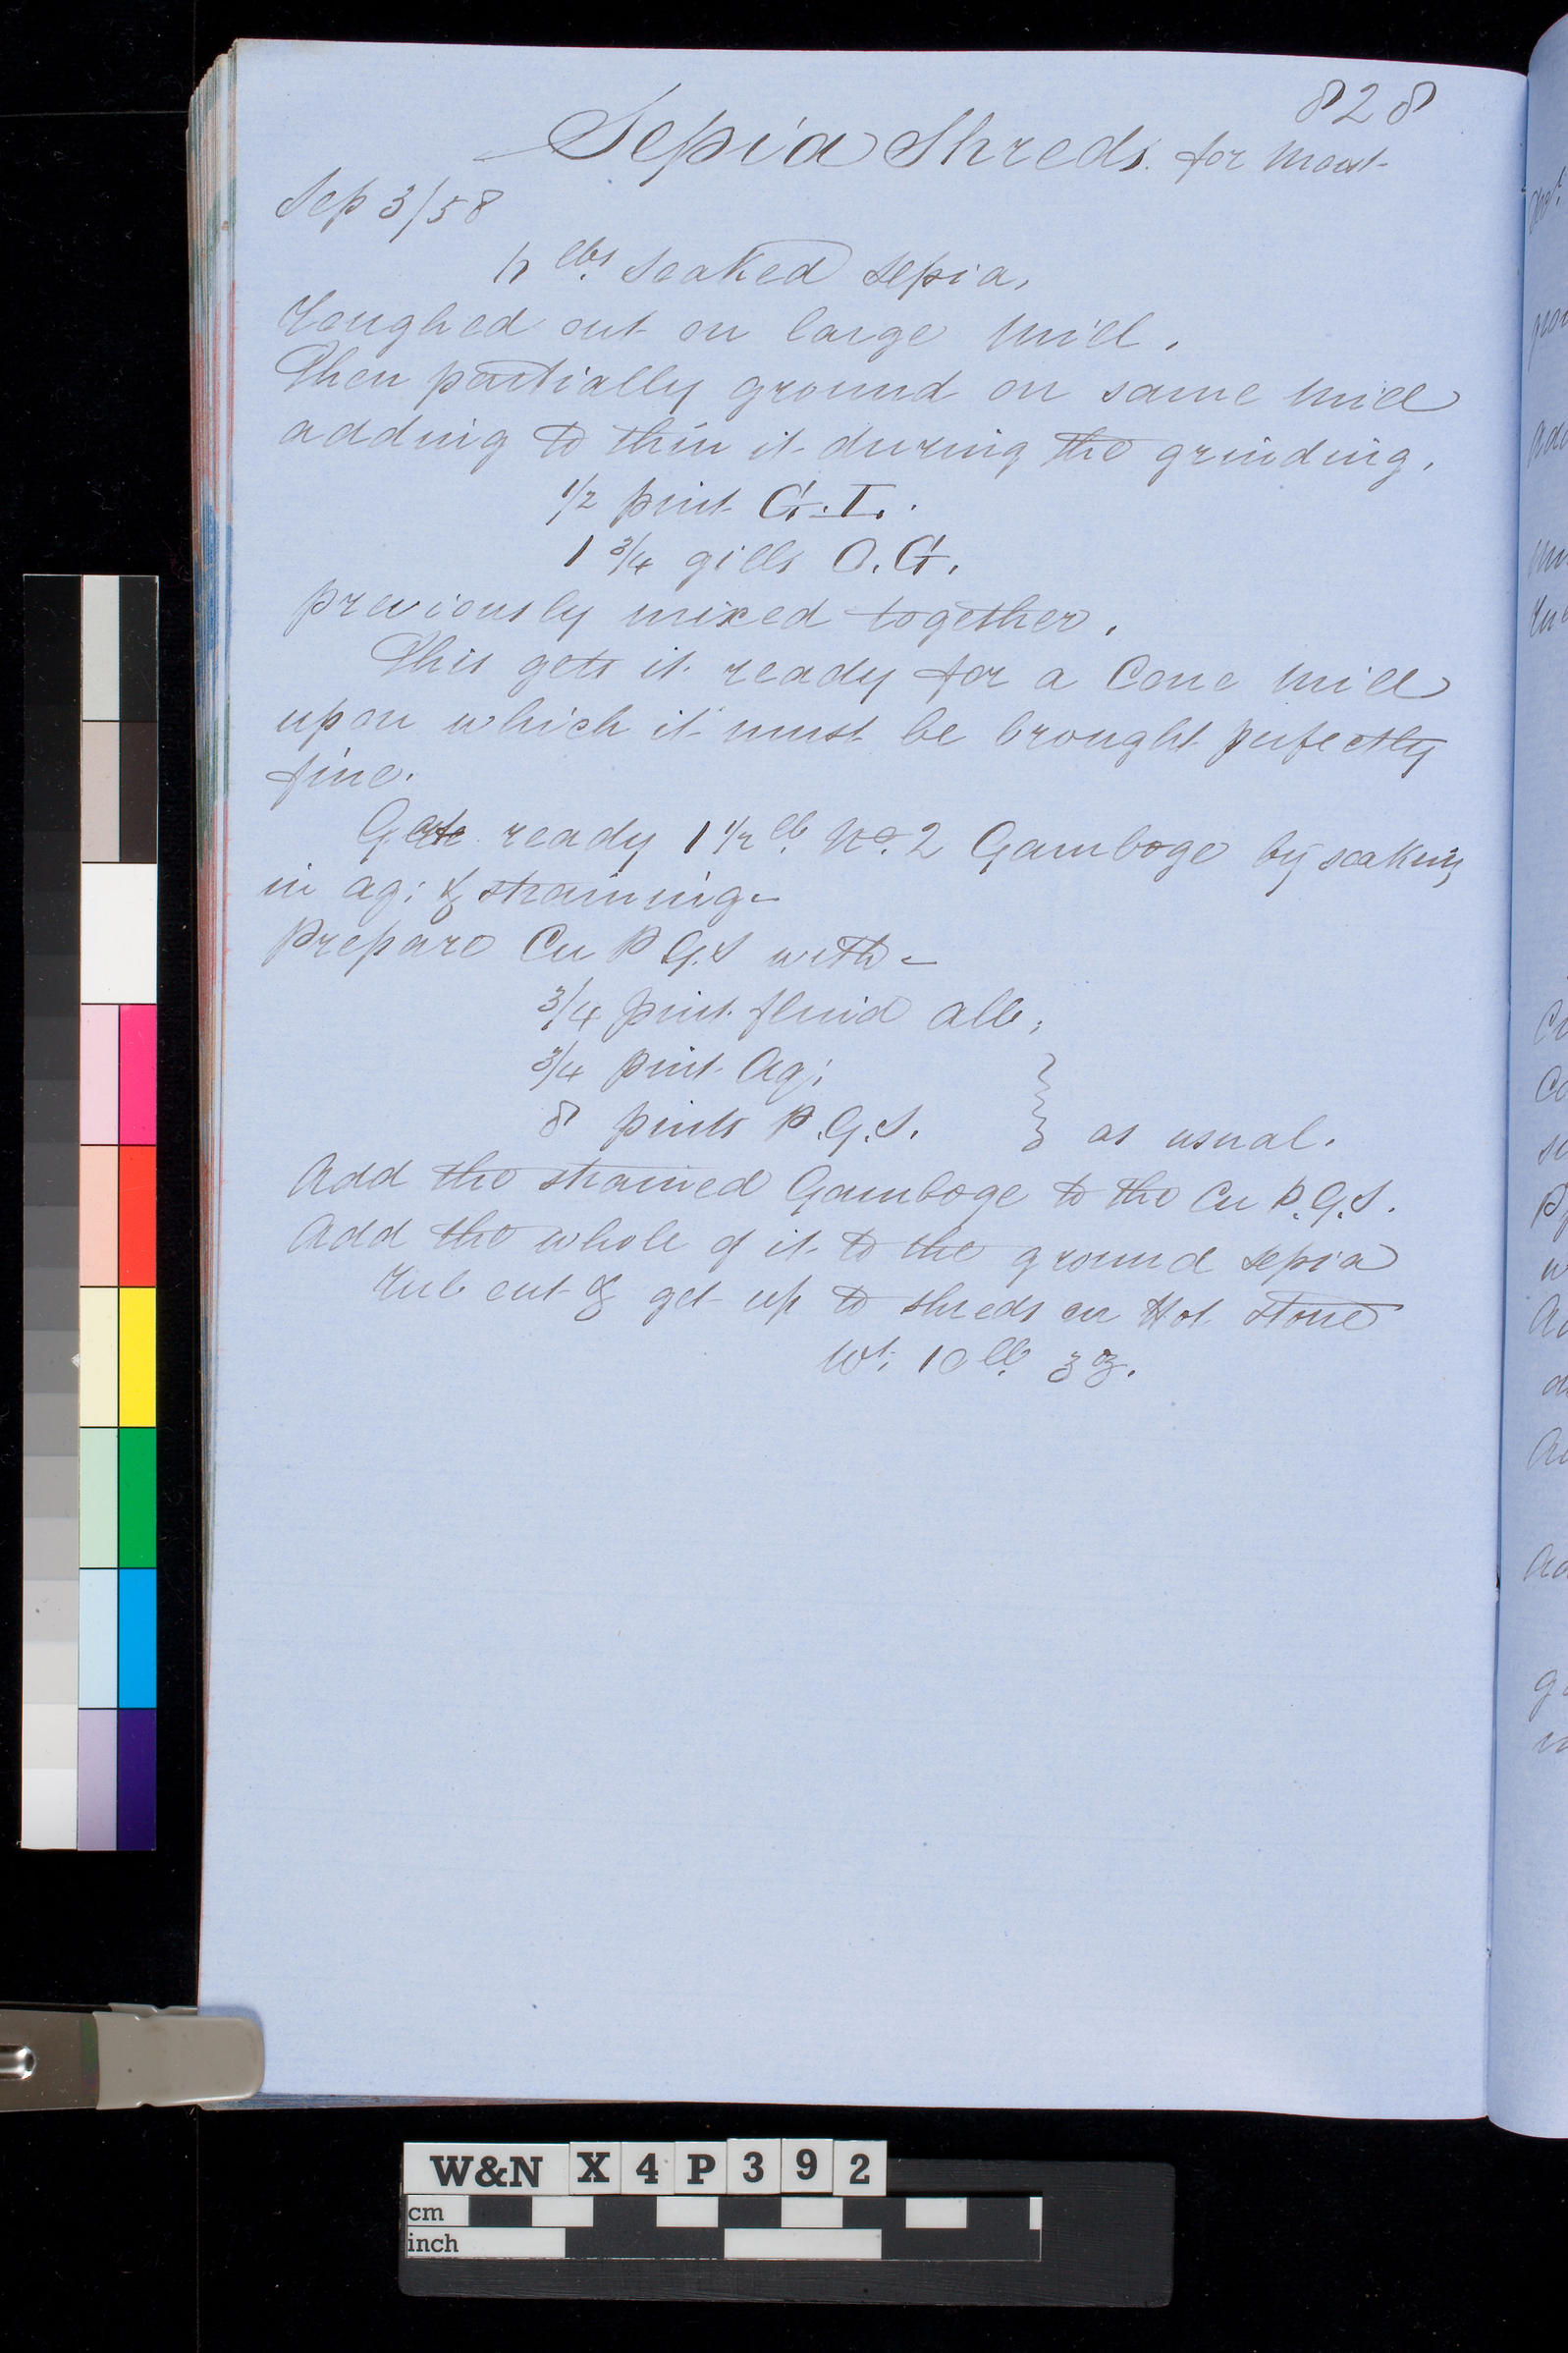 828
Sepia Shreds. for Moist
Sep 3/58
lbs soaked sepia,
Roughed out on large Mill.
Then partially ground on same Mill
adding to thin it during the grinding.
1/2 pint G.I.
1 3/4 gills O.G.
previously mixed together.
This gets it ready for a Cone Mill
upon which it must be brought perfectly
fine.
ready 1 1/2 lb. No. 2 Gamboge by soaking
in aq: & straining -
Prepare Cu P G.S with -
3/4 pint fluid alb;
3/4 pint Aq;
8 pints P.G.S. } as usual.
Add the strained Gamboge to the Cu P.G.S.
Add the whole of it to the ground sepia
Rub out & get up to shreds on Hot Stone
Wt; 10 lb. 3 oz.
W&N X 4 P 3 9 2
cm
inch